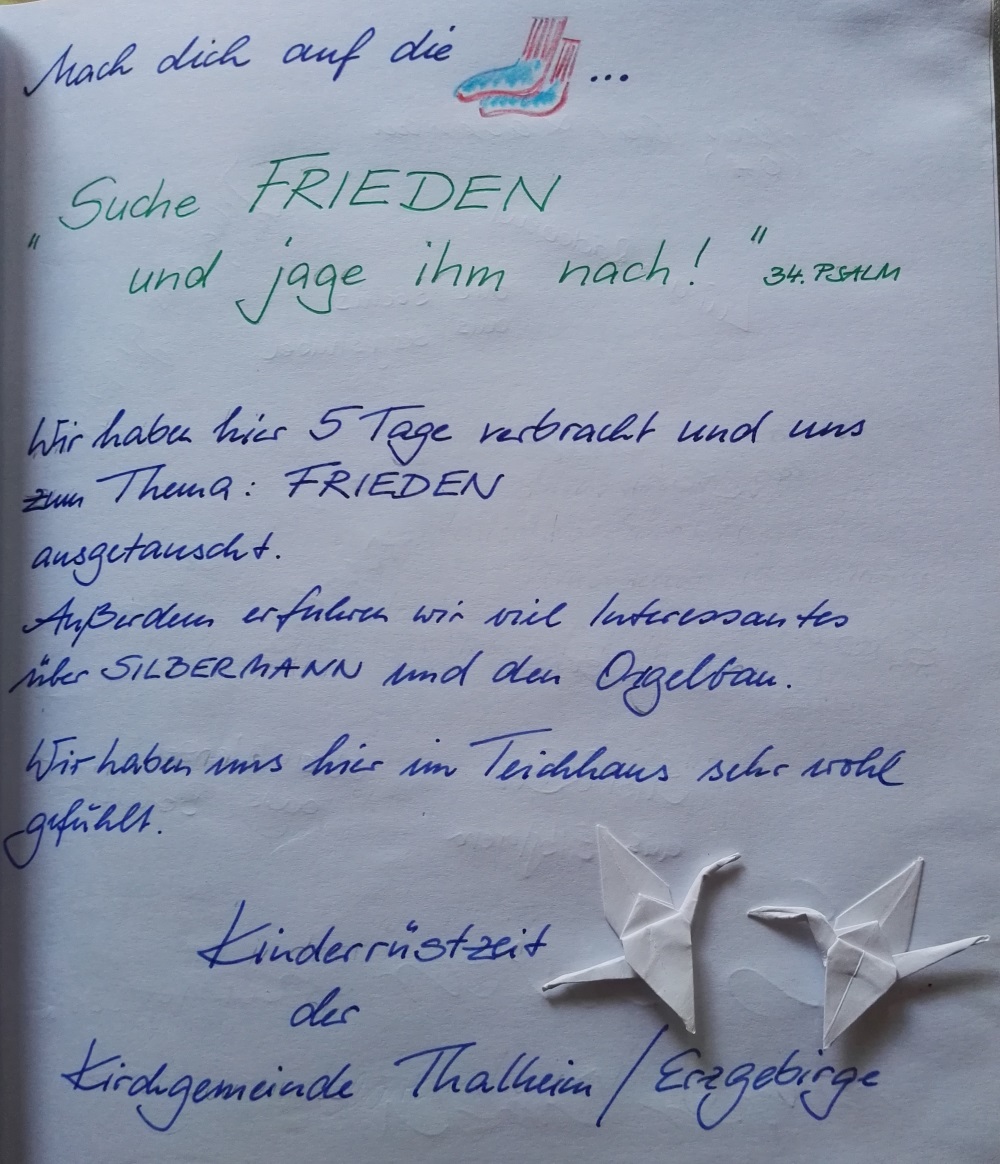 Mach dich auf die ...
"Suche FRIEDEN
und jage ihm nach!" 34. PSALM
Wir haben hier 5 Tage verbracht und uns
zum Thema: FRIEDEN
ausgetauscht.
Außerdem erfuhren wir viel Interessantes
über SILBERMANN und den Orgelbau.
Wir haben uns hier im Teichhaus sehr wohl
gefühlt.
Kinderrüstzeit
der
Kirchgemeinde Thalheim / Erzgebirge